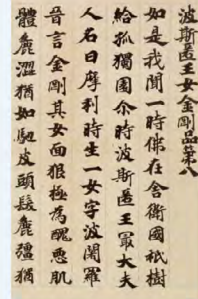 波斯匿王女金剛品第八
如是我聞一時佛在舍衛國祇樹
給孤獨園尒時波斯匿王冣大夫
人名曰摩利時生一女字波闍羅
晉言金剛其女面狠極為醜惡肌
體麁澀猶如馳皮頭髮麁彊猶